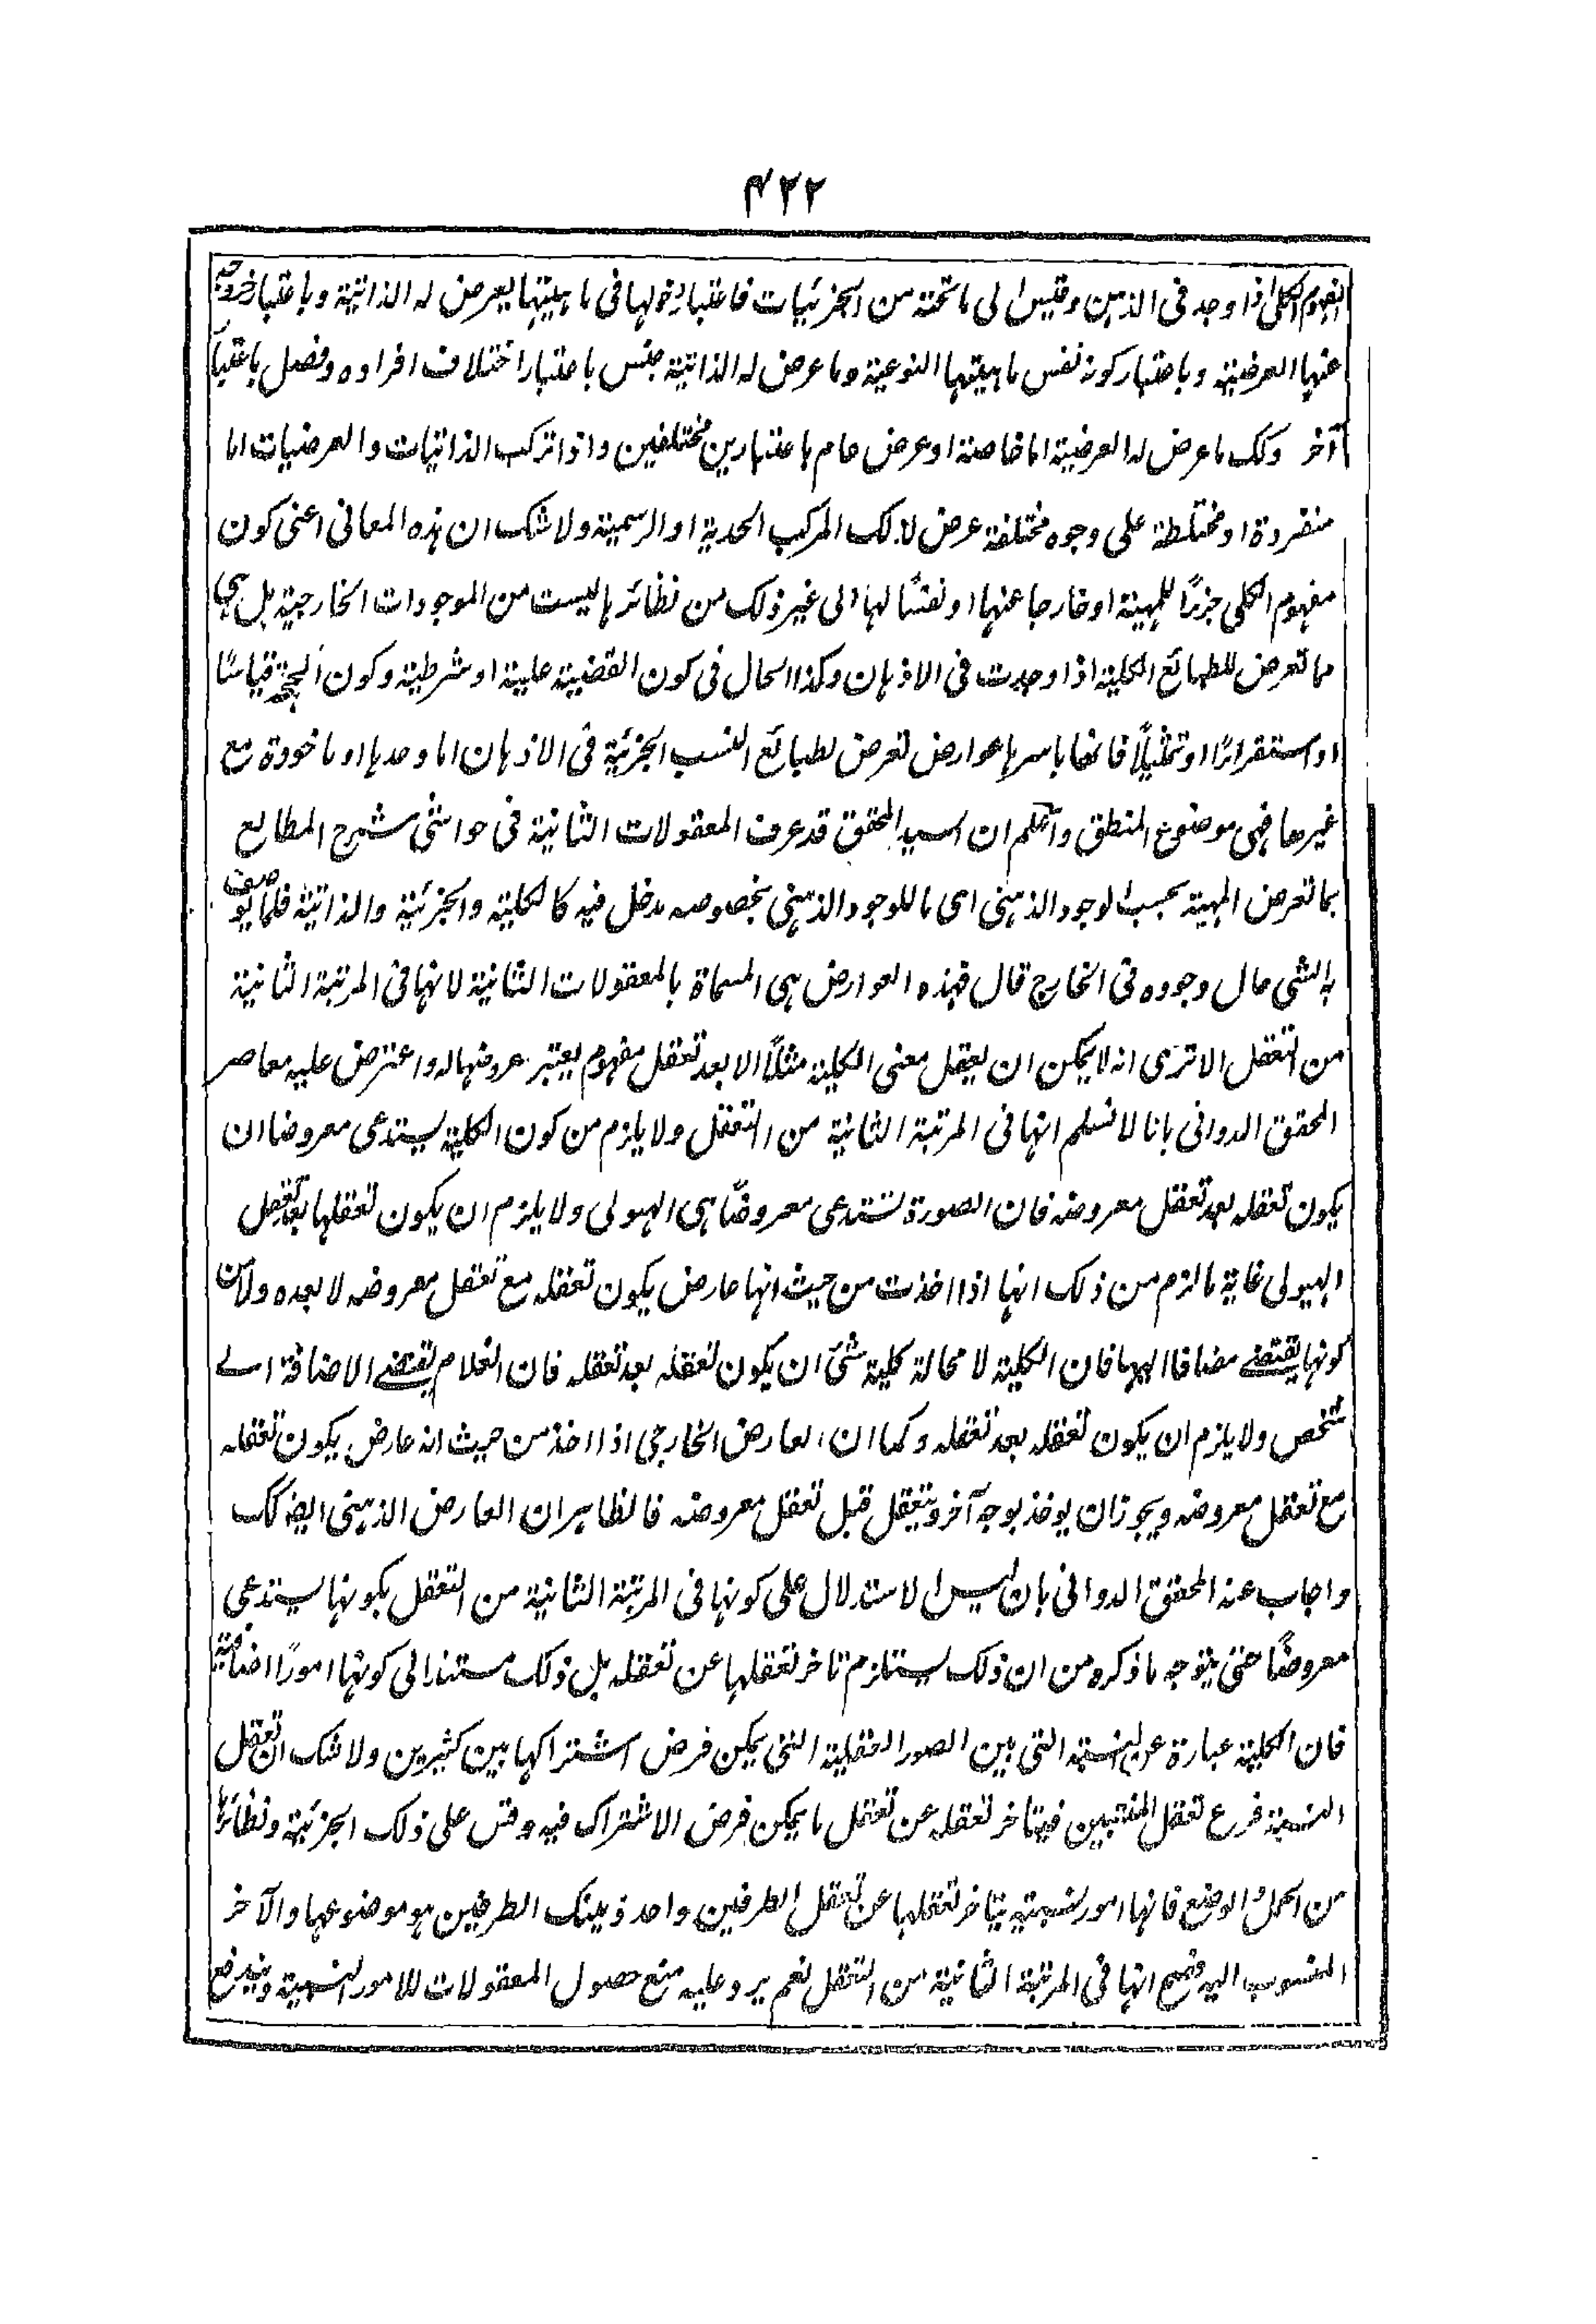 ۴۲۲
المفهوم الكلى اذا وجد فى الذهن وقيس الى ما تحته من الجزئيات فاعتبار دخولها فى ماهيتها يعرض له الذاتية وباعتبار خروجه
عنها العرضية وباعتبار كونه نفس ماهيتها النوعية وما عرض له الذاتية جنس باعتبار اختلاف افراده وفصل باعتبار
آخر وكك ما عرض له العرضية اما خاصة او عرض عام باعتبارين مختلفين واذا تركب الذاتيات والعرضيات اما
منفردة او مختلطة على وجوه مختلفة عرض لذلك المركب الحدية او الرسمية ولا شك ان هذه المعانى اعنى كون
مفهوم الكلى جزءًا للمهية او خارجا عنها او نفسًا لها الى غير ذلك من نظائرها ليست من الموجودات الخارجية بل هى
مما تعرض للطبائع الكلية اذا وجدت فى الاذهان وكذا الحال فى كون القضية حملية او شرطية وكون الحجة قياسًا
او استقراءًا او تمثيلًا فانها باسرها عوارض تعرض لطبائع النسب الجزئية فى الاذهان اما وحدها او ماخوذة مع
غيرها فهى موضوع المنطق واعلم ان السيد المحقق قد عرف المعقولات الثانية فى حواشى شرح المطالع
بما تعرض المهية بحسب الوجود الذهنى اى ما للوجود الذهنى بخصوصه مدخل فيه كالكلية والجزئية والذاتية فلما يوصف
به الشئ حال وجوده فى الخارج قال فهذه العوارض هى المسماة بالمعقولات الثانية لانها فى المرتبة الثانية
من التعقل الا ترى انه لا يمكن ان يعقل معنى الكلية مثلًا الا بعد تعقل مفهوم يعتبر عروضها له واعترض عليه معاصر
المحقق الدوانى بانا لا نسلم انها فى المرتبة الثانية من التعقل ولا يلزم من كون الكلية يستدعى معروضا ان
يكون تعقله بعد تعقل معروضه فان الصورة تستدعى معروضًا هى الهيولى ولا يلزم ان يكون تعقلها بعد تعقل
الهيولى غاية ما لزم من ذلك انها اذا اخذت من حيث انها عارض يكون تعقله مع تعقل معروضه لا بعده ولا من
كونها يقتضے مضافا اليها فان الكلية لا محالة كلية شئ ان يكون تعقله بعد تعقله فان الغلام يقتضے الاضافة الے
شخص ولا يلزم ان يكون تعقله بعد تعقله وكما ان العارض الخارجى اذا اخذ من حيث انه عارض يكون تعقله
مع تعقل معروضه ويجوز ان يوخذ بوجه آخر ويتعقل قبل تعقل معروضه فالظاهر ان العارض الذهنى ايضا كك
واجاب عنه المحقق الدوانى بان ليس الاستدلال على كونها فى المرتبة الثانية من التعقل بكونها يستدعى
معروضًا حتى يتوجه ما ذكره من ان ذلك يستلزم تاخر تعقلها عن تعقله بل ذلك مستندا الى كونها امورًا اضافية
فان الكلية عبارة عن النسبة التى بين الصور العقلية التى يمكن فرض اشتراكها بين كثيرين ولا شك ان تعقل
النسبة فرع تعقل المنتسبين فيتاخر تعقله عن تعقل ما يمكن فرض الاشتراك فيه وقس على ذلك الجزئية ونظائرها
من الحمل والوضع فانها امور نسبية يتاخر تعقلها عن تعقل الطرفين واحد ذينك الطرفين هو موضوعها والآخر
المنسوب اليه فصح انها فى المرتبة الثانية من التعقل نعم يرد عليه منع حصول المعقولات للامور النسبية ويندفع